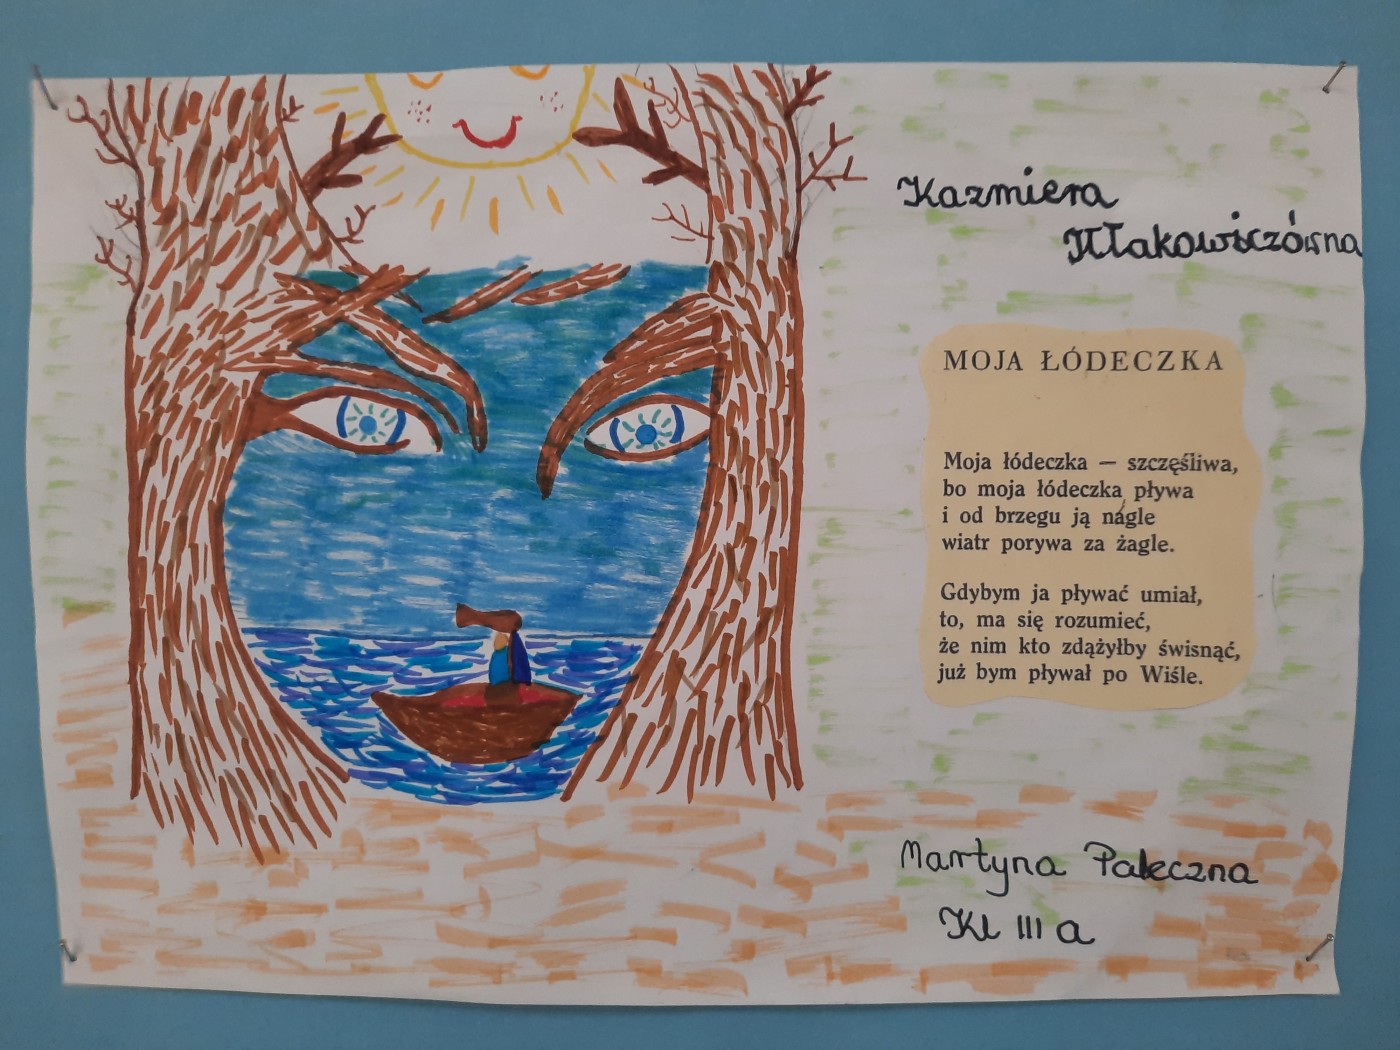 Kazmiera
Iłłakowiczówna
MOJA ŁÓDECZKA
Moja łódeczka — szczęśliwa,
bo moja łódeczka pływa
i od brzegu ją nagle
wiatr porywa za żagle.
Gdybym ja pływać umiał,
to, ma się rozumieć,
że nim kto zdążyłby świsnąć,
już bym pływał po Wiśle.
Martyna Pałeczna
Kl III a